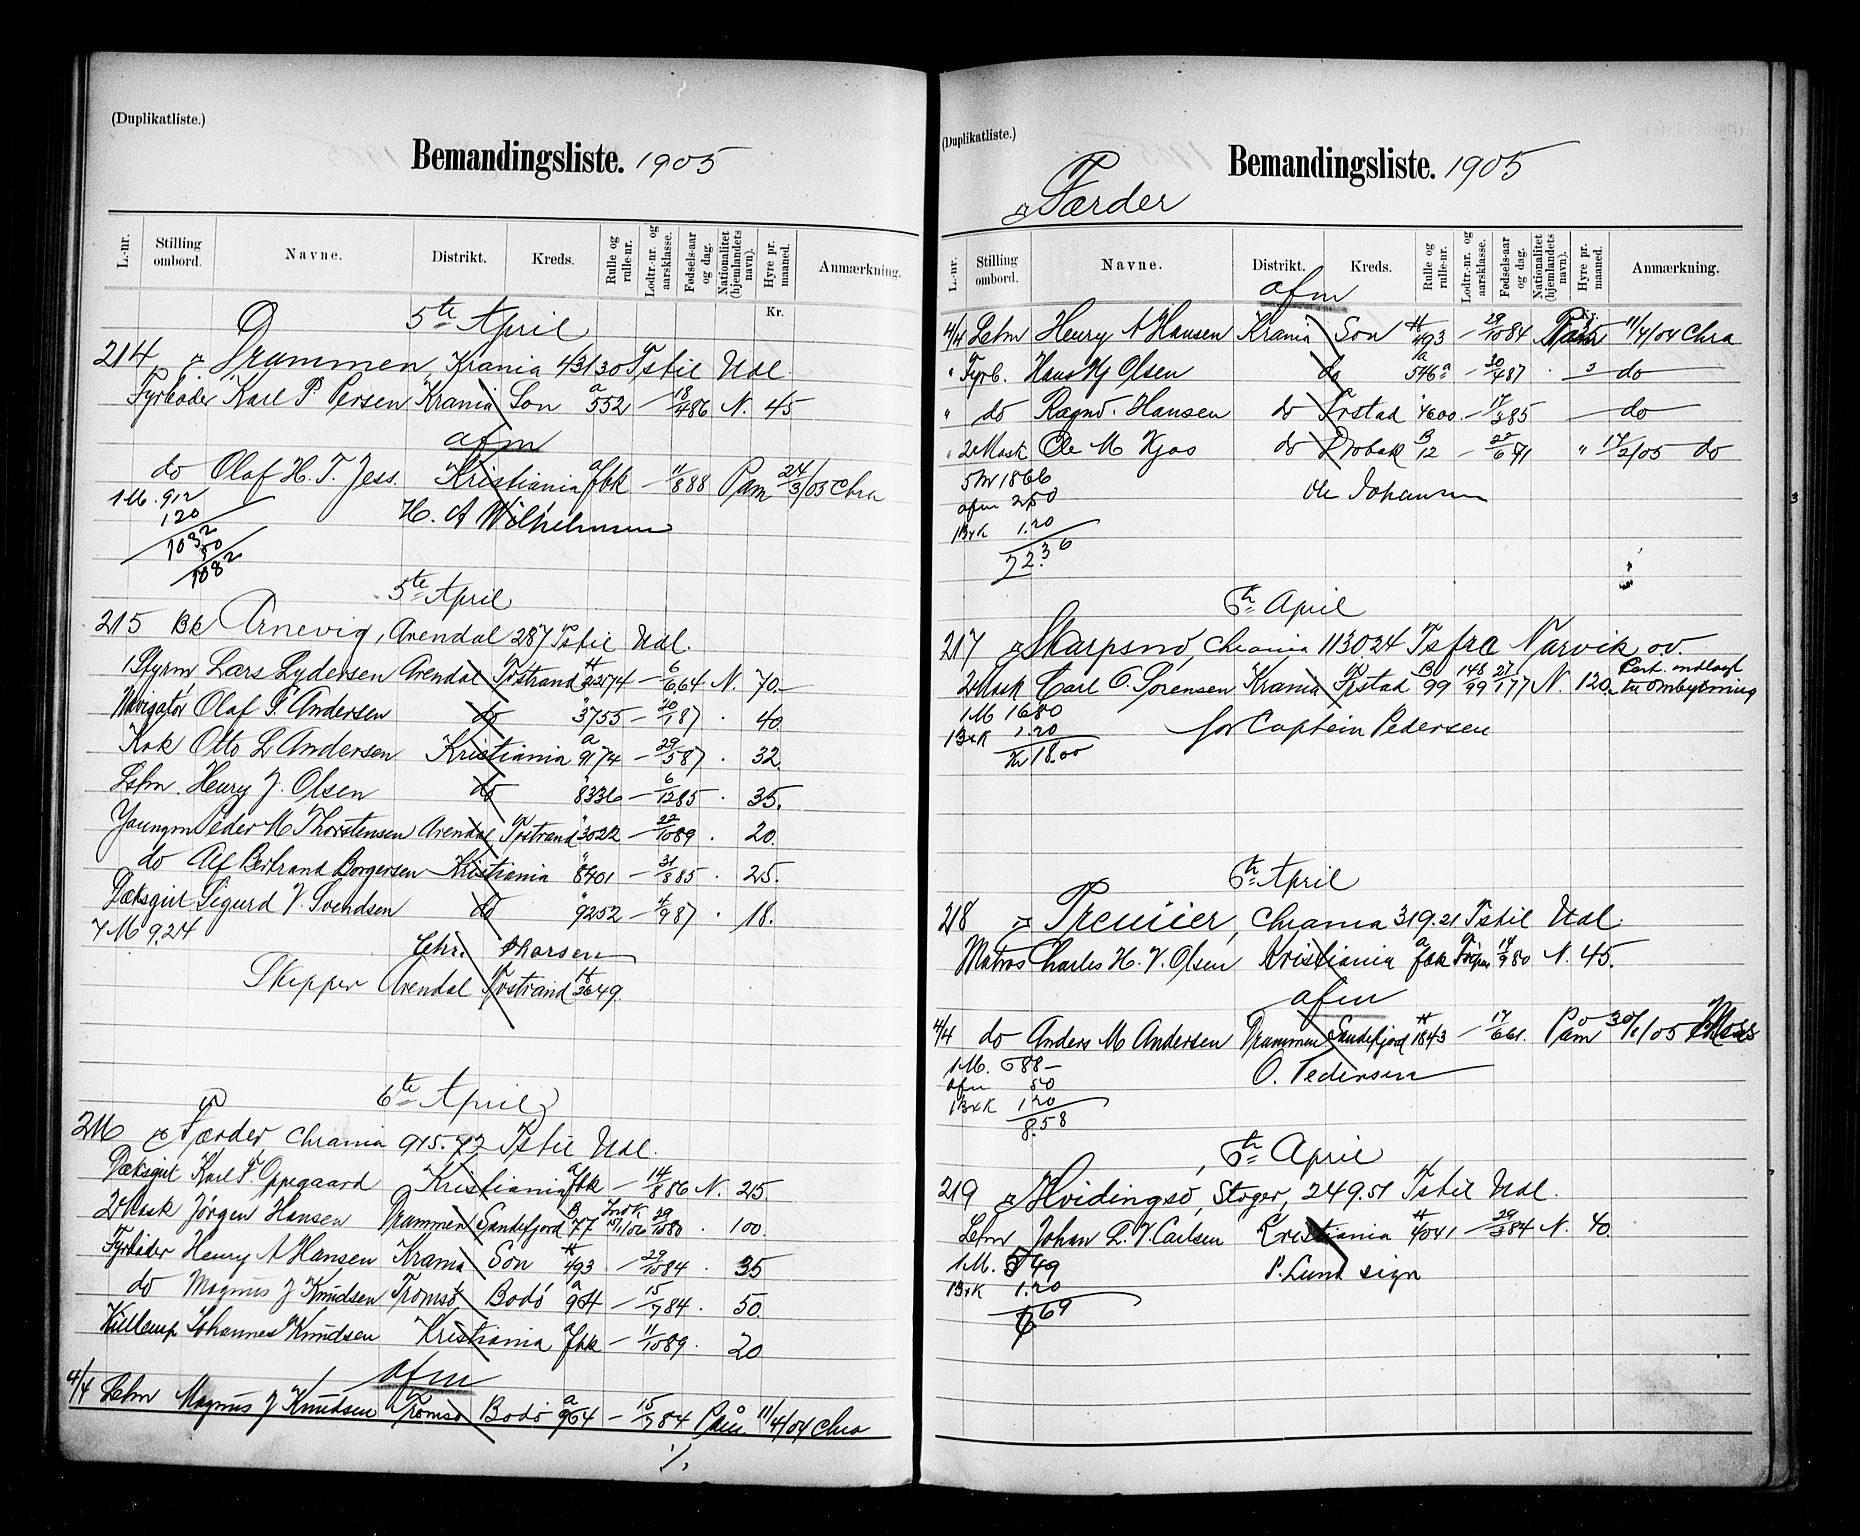 (Duplikatliste.)
Bemandingsliste. 1905
L.-nr. Stilling ombord. Navne. Distrikt. Kreds. Rulle og rulle-nr. Lodtr.-nr. og aarsklasse. Fødsels-aar og dag. Nationalitet (hjemlandets navn). Hyre pr. maaned. Anmærkning.
Kr.
5te April
214 Drammen, Krania 431.30 Ts til Udl.
Fyrbøder Karl P. Persen Krania Son a 552 – 18/4 86 N. 45
afm
do Olaf H. T. Jess. Kristiania afbk – 11/8 88 Paam 24/3/05 Chra
1 M. 912
H. A Wilhelmsen
120
1032
50
1082
5te April
215 Bk Arnevig, Arendal 287 Ts til Udl.
1 Styrm, Lars Lydersen Arendal Tostrand H 2274 – 6/6 64 N. 70.–
Navigatør Olaf F Andersen do " 3755 – 20/1 87 . 40.
Kok Otto L Andersen Kristiania a 9174 – 29/5 87 . 32.
Letm. Henry J. Olsen do " 8336 – 6/12 85 . 35.
Youngm Peder M Thorstensen Arendal Tostrand " 3022 – 22/10 89 . 20.
do Alf Bertrand Borgersen Kristiania " 8401 – 31/8 85 . 25.
Dæksgut Sigurd V. Svendsen do " 9252 – 4/9 87 . 18.
7 M 9.24
Chr. Thorsen
Skipper Arendal Tostrand H 2649
6te April
216 Færder, Chrania 915.72 Ts til Udl.
Dæksgut Karl F. Oppegaard Kristiania afbk – 14/8 86 N. 25
2 Mask Jørgen Hansen Drammen Sandefjord B 77 29/10 80 . 100.
Fyrbøder Henry A Hansen Krania Son H 493 – 29/10 84 . 35
do Magnus J Knudsen Tromsø Bodø a 964 – 15/7 84 . 50.
Johannes Knudsen Kristiania afbk – 11/10 89 . 20
afm
4/4 Letm Magnus J Knudsen Tromsø Bodø a 964 – 15/7 84 Paam 11/4/04 Chra
%
(Duplikatliste.)
Bemandingsliste. 1905
Færder
L.-nr. Stilling ombord. Navne. Distrikt. Kreds. Rulle og rulle-nr. Lodtr.-nr. og aarsklasse. Fødsels-aar og dag. Nationalitet (hjemlandets navn). Hyre pr. maaned. Anmærkning.
afm
4/4 Letm Henry A Hansen Krania Son H 493 – 29/10 84 11/4/04 Chra
" Fyrb. Hans Hj Olsen do 546 a – 30/4 87 . " do
" do Ragnv. Hansen do Ørstad " 4600 – 17/3 85 do
" 2 Mask Ole M Kjos do Drøbak B 12 – 22/6 71 " 17/2/05 do
5 M 1866
Ole Johansen
afm 250
1 Bxk 1.20
22.36
6te April
217 Skarpsno, Chrania 1130.24 Ts fra Narvik ov.
2 Mask Carl O. Sørensen Krania Ørstad B 99 148/99 27/1 77 N. 120. Part. indlagt til ombytning
1 M 1680
for Captein Pedersen
1 Bxk 1.20
Kr 18.00
6te April
218 Premier, Chrania 319.21 Ts til Udl.
Matros Charles H. V. Olsen Kristiania afbk 14/9 80 N. 45.
afm
4/4 do Anders M Andersen Drammen Sandefjord H 1843 – 17/6 61. Paam 30/1/05 Moss
1 M. 688–
O. Pedersen
afm 50
1 Bxk 1.20
8.58
6te April
219 Hvidingsø, Stvger, 249.51 Ts til Udl.
Letm Johan L. V. Carlsen Kristiania H 4041 – 29/3 84 N. 40.
1 M. 549
P. Lund sign
1 Bxk 1.20
669